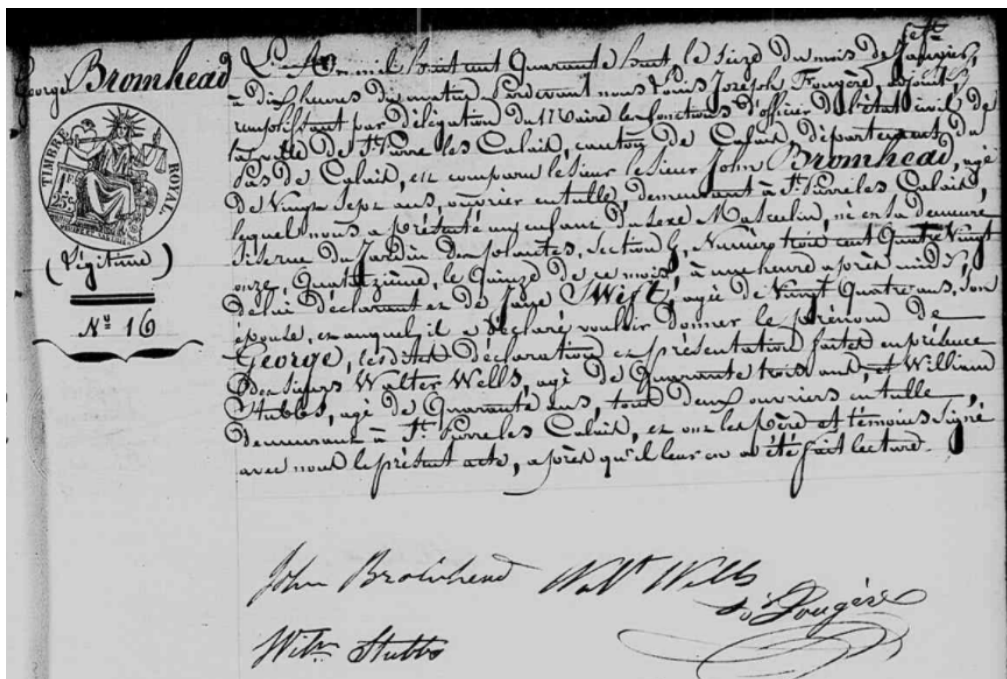 George Bromhead
TIMBRE ROYAL
1F 25c
(Légitime)
Nº 16
L'An mil huit cent Quarante huit, le Seize du mois de Janvier,
à dix heures du matin, Pardevant nous Louis Joseph Fougère, adjoint,
remplissant par délégation du Maire les fonctions d'officier de l'état civil de
la ville de St. Pierre les Calais, canton de Calais, département du
Pas de Calais, est comparu le sieur le sieur John Bromhead, agé
de Vingt sept ans, ouvrier en tulle, demeurant à St. Pierre les Calais,
lequel nous a présenté un enfant du sexe Masculin, né en sa demeure
sise rue du Jardin des plantes, Section G, Numéro trois cent Quatre Vingt
onze, Quatorzième, le Quinze de ce mois, à une heure après midi,
de lui déclarant et de Jane Swift, agée de Vingt Quatre ans, son
épouse, et auquel il a déclaré vouloir donner le prénom de
George, lesdites déclaration et présentation faites en présence
des sieurs Walter Wells, agé de Quarante trois ans, et William
Stubbs, agé de Quarante ans, tous deux ouvriers en tulle,
demeurant à St. Pierre les Calais, et ont les père et témoins signé
avec nous le présent acte, après qu'il leur en a été fait lecture.
John Bromhead Walt Wells
Ls Jh Fougère
Willm Stubbs